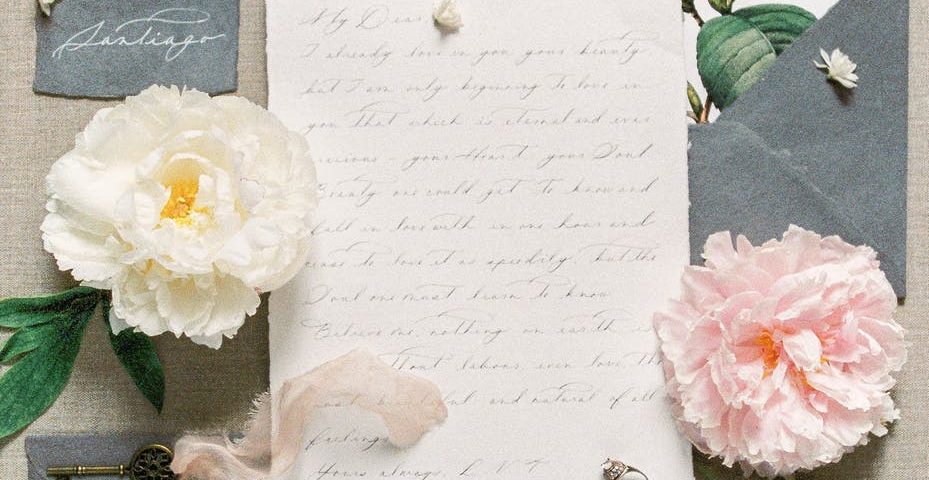 Santiago
My Dear,
I already love in you your beauty
but I am only beginning to love in
you that which is eternal and ever
precious - your heart, your Soul
Beauty one could get to know and
fall in love with in one hour and
cease to love it as speedily, but the
Soul one must learn to know
Believe me, nothing on earth is
without labour, even love, the
most beautiful and natural of all
feelings
Yours always, L. N. T.